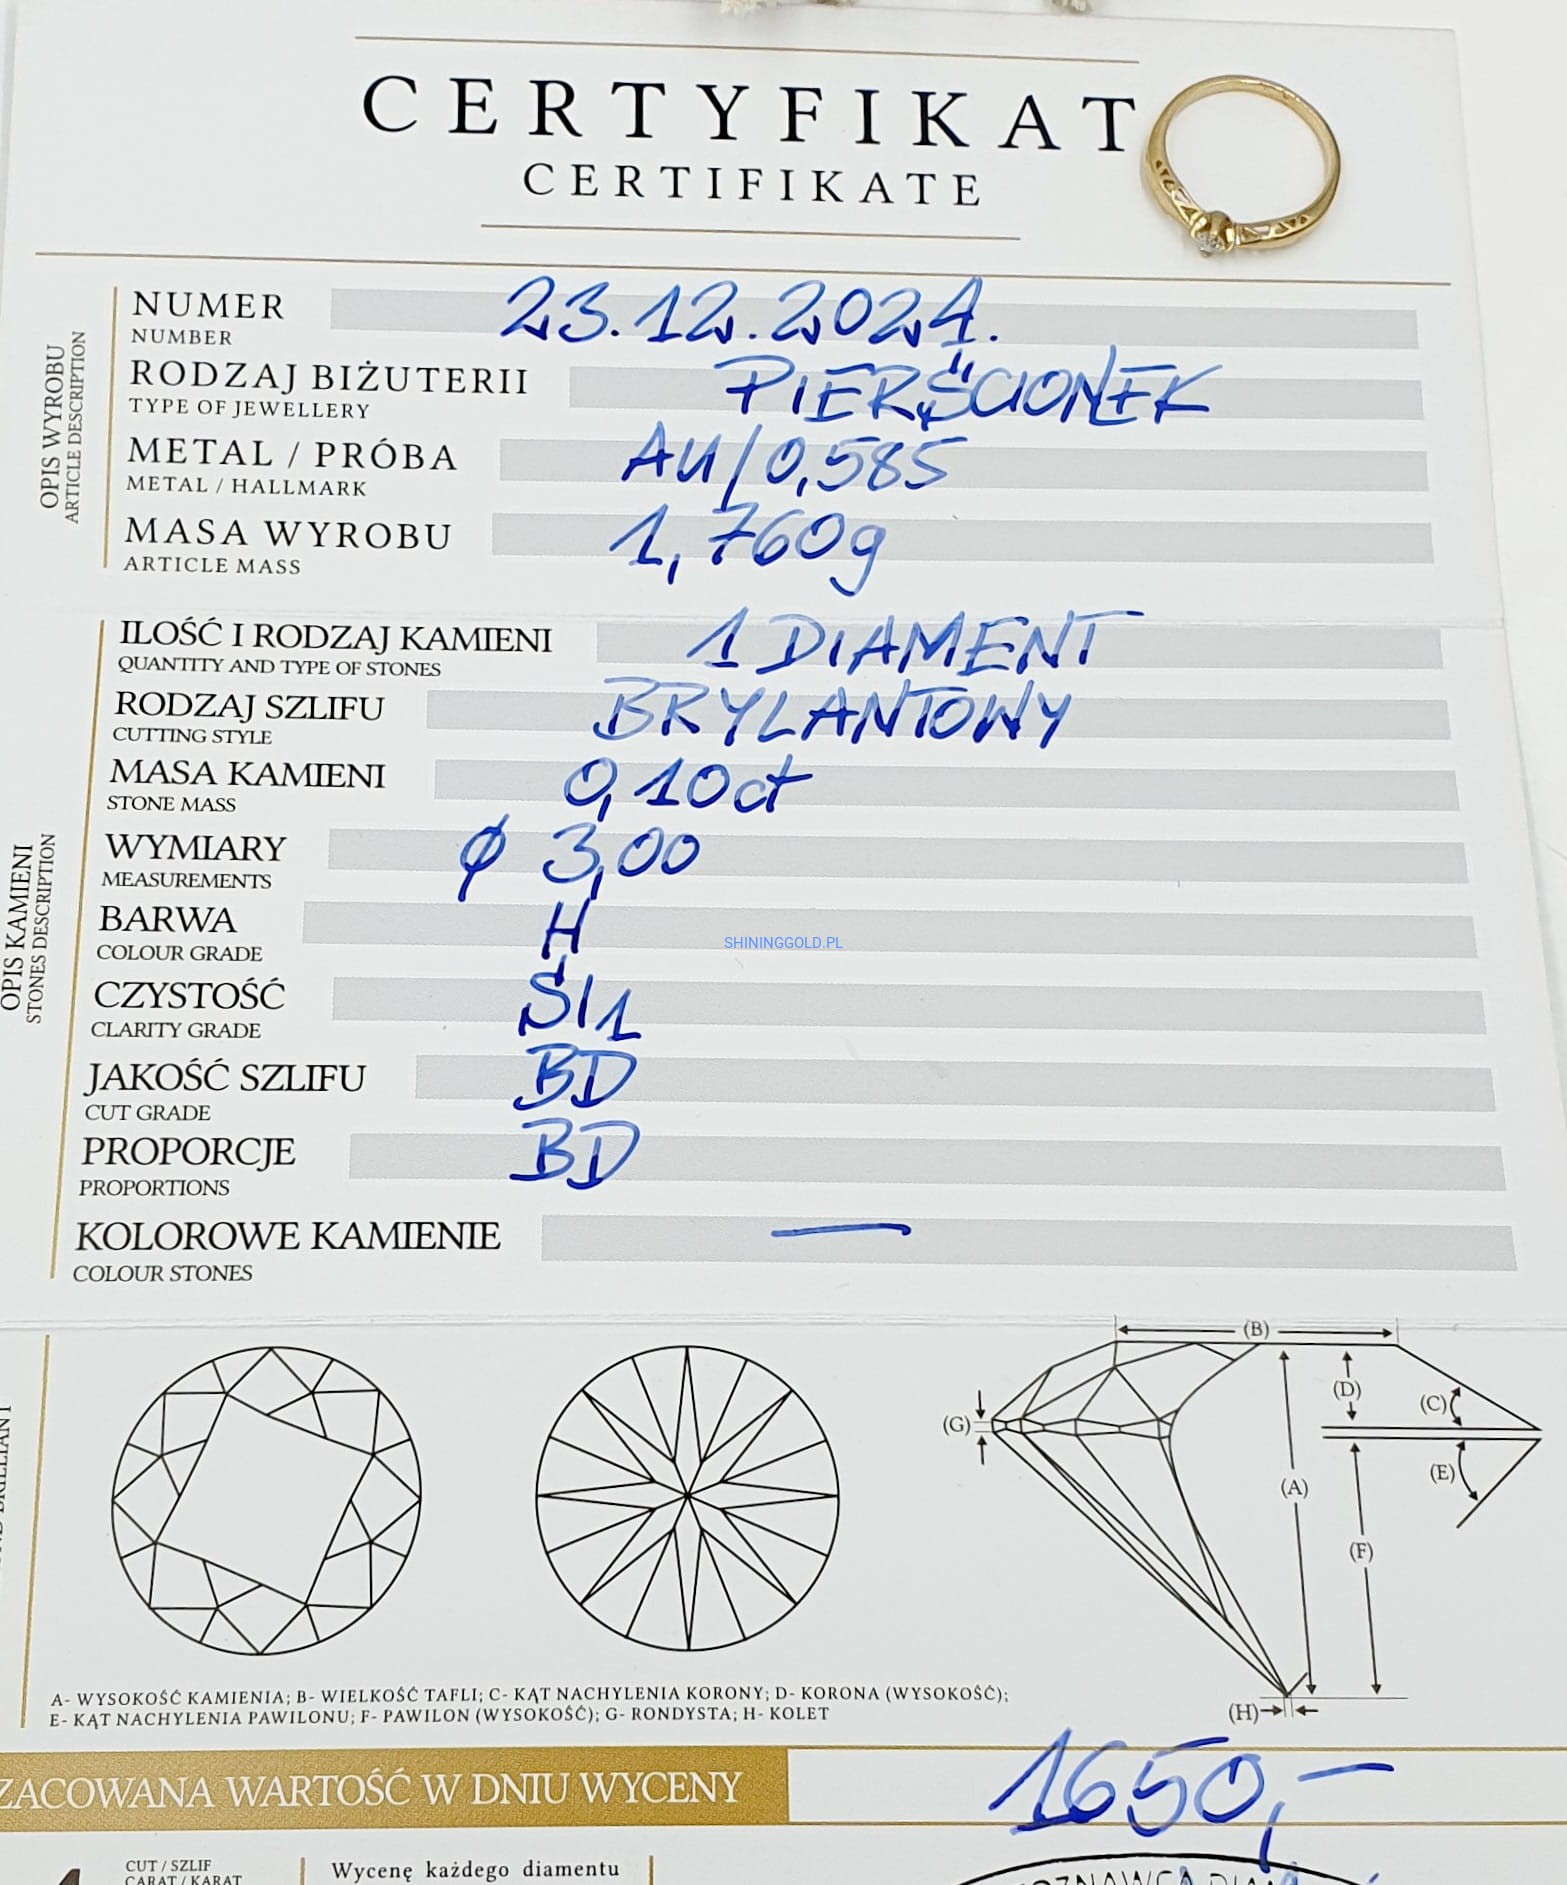 CERTYFIKAT
CERTIFIKATE
OPIS WYROBU
ARTICLE DESCRIPTION
NUMER 23.12.2024.
NUMBER
RODZAJ BIŻUTERII PIERŚCIONEK
TYPE OF JEWELLERY
METAL / PRÓBA AU/0,585
METAL / HALLMARK
MASA WYROBU 1,760g
ARTICLE MASS
OPIS KAMIENI
STONES DESCRIPTION
ILOŚĆ I RODZAJ KAMIENI 1 DIAMENT
QUANTITY AND TYPE OF STONES
RODZAJ SZLIFU BRYLANTOWY
CUTTING STYLE
MASA KAMIENI 0,10ct
STONE MASS
WYMIARY ϕ 3,00
MEASUREMENTS
BARWA H
COLOUR GRADE
SHININGGOLD.PL
CZYSTOŚĆ SI1
CLARITY GRADE
JAKOŚĆ SZLIFU BD
CUT GRADE
PROPORCJE BD
PROPORTIONS
KOLOROWE KAMIENIE —
COLOUR STONES
(B)
(D)
(C)
(G)
(E)
(A)
(F)
(H)
A- WYSOKOŚĆ KAMIENIA; B- WIELKOŚĆ TAFLI; C- KĄT NACHYLENIA KORONY; D- KORONA (WYSOKOŚĆ);
E- KĄT NACHYLENIA PAWILONU; F- PAWILON (WYSOKOŚĆ); G- RONDYSTA; H- KOLET
ZACOWANA WARTOŚĆ W DNIU WYCENY 1650,—
CUT / SZLIF
CARAT / KARAT
Wycenę każdego diamentu